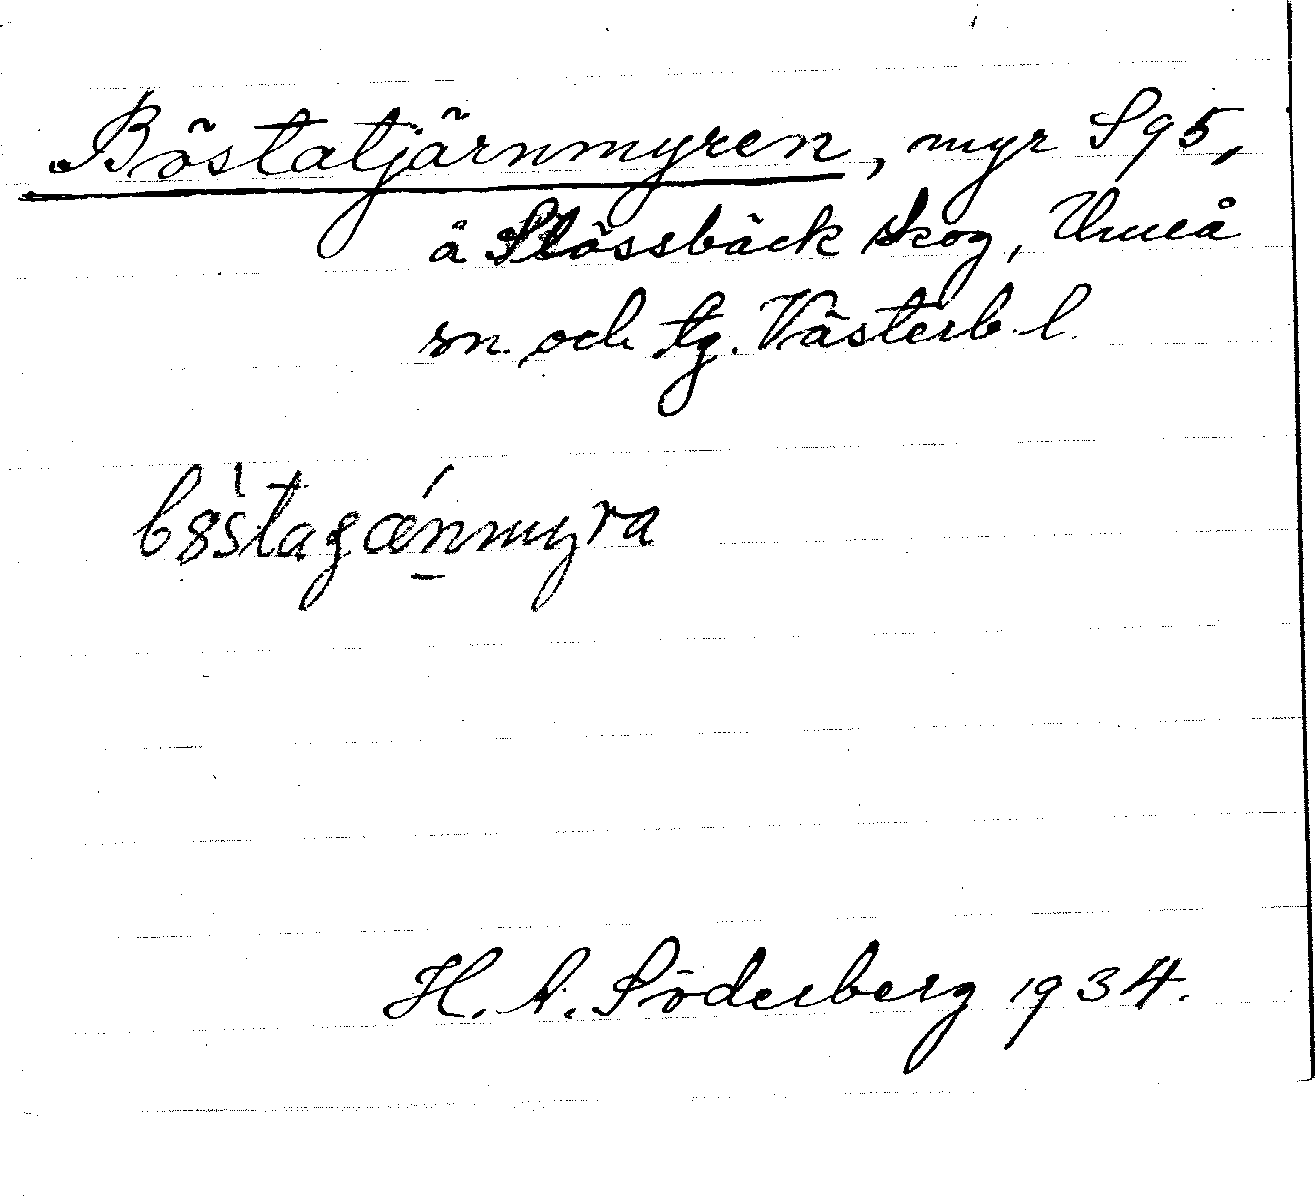 Böstatjärnmyren, myr S95,
å Stössbäck skog, Umeå
sn. och tg. Västerb. l.
H. A. Söderberg 1934.